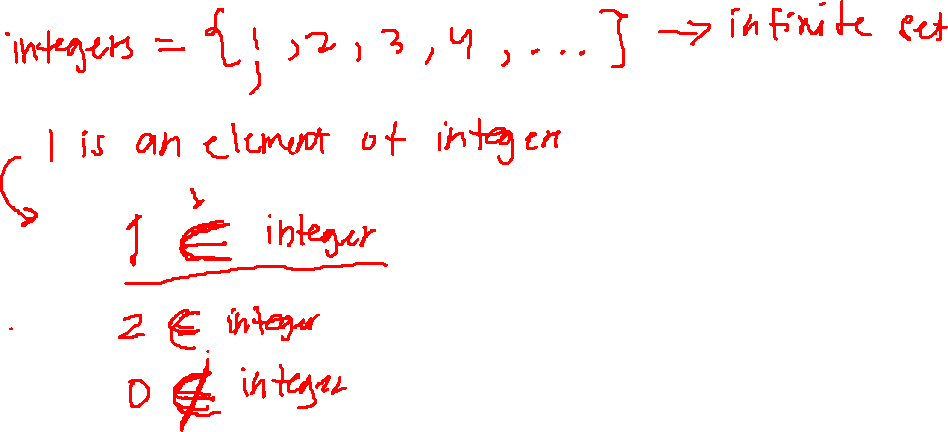 integers = {1, 2, 3, 4, ...} → infinite set
1 is an element of integers
1 ∈ integer
2 ∈ integer
0 ∉ integer